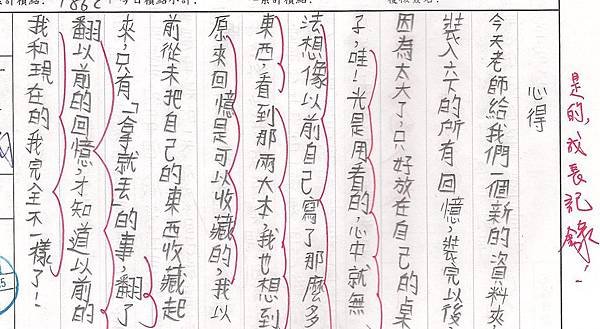 心得
今天老師給我們一個新的資料夾,
裝入六下的所有回憶,裝完以後
因為太大了,只好放在自己的桌
子,哇!光是用看的,心中就無
法想像以前自己寫了那麼多
東西,看到那兩大本,我也想到
原來回憶是可以收藏的,我以
前從未把自己的東西收藏起
來,只有「拿就丟的事,翻了
翻以前的回憶,才知道以前的
我和現在的我完全不一樣了!
是的,成長記錄!